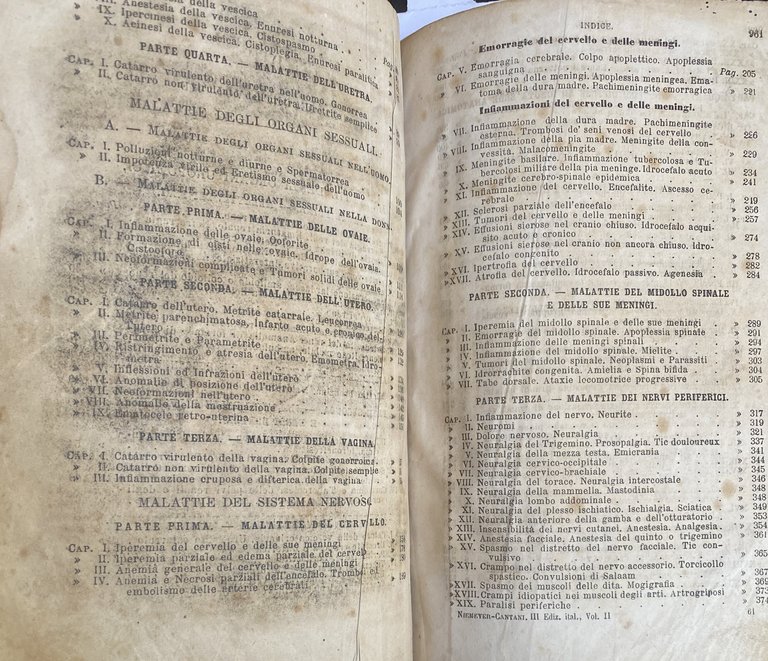 VIII. Anestesia della vescica. Enuresi notturna
» IX. Ipercinesi della vescica. Cistospasmo
» X. Acinesi della vescica. Cistoplegia. Enuresi paralitica
PARTE QUARTA. — MALATTIE DELL'URETRA.
CAP. I. Catarro virulento dell'uretra nell'uomo. Gonorrea
» II. Catarro non virulento dell'uretra. Uretrite semplice
MALATTIE DEGLI ORGANI SESSUALI.
A. — MALATTIE DEGLI ORGANI SESSUALI NELL'UOMO.
CAP. I. Polluzioni notturne e diurne e Spermatorrea
» II. Impotenza virile ed Eretismo sessuale dell'uomo
B. — MALATTIE DEGLI ORGANI SESSUALI NELLA DONNA.
PARTE PRIMA. — MALATTIE DELLE OVAIE.
CAP. I. Infiammazione delle ovaie. Ooforite
» II. Formazione di cisti nelle ovaie. Idrope dell'ovaia.
» III. Neoformazioni complicate e Tumori solidi delle ovaie
PARTE SECONDA. — MALATTIE DELL'UTERO.
CAP. I. Catarro dell'utero. Metrite catarrale. Leucorrea
» II. Metrite parenchimatosa. Infarto acuto e cronico del-
l'utero
» III. Perimetrite e Parametrite
» IV. Ristringimento e atresia dell'utero. Emometra. Idro-
metra
» V. Inflessioni ed Infrazioni dell'utero
» VI. Anomalie di posizione dell'utero
» VII. Neoformazioni nell'utero
» VIII. Anomalie della mestruazione
» IX. Ematocele retro-uterina
PARTE TERZA. — MALATTIE DELLA VAGINA.
CAP. I. Catarro virulento della vagina. Colpite gonorroica
» II. Catarro non virulento della vagina. Colpite semplice
» III. Infiammazione cruposa e difterica della vagina
MALATTIE DEL SISTEMA NERVOSO.
PARTE PRIMA. — MALATTIE DEL CERVELLO.
CAP. I. Iperemia del cervello e delle sue meningi
» II. Iperemia parziale ed edema parziale del cervello
» III. Anemia generale del cervello e delle meningi
» IV. Anemia e Necrosi parziali dell'encefalo. Trombosi ed
embolismo delle arterie cerebrali
INDICE. 961
Emorragie del cervello e delle meningi.
CAP. V. Emorragia cerebrale. Colpo apoplettico. Apoplessia
sanguigna Pag. 205
» VI. Emorragie delle meningi. Apoplessia meningea. Ema-
toma della dura madre. Pachimeningite emorragica » 221
Infiammazioni del cervello e delle meningi.
» VII. Infiammazione della dura madre. Pachimeningite
esterna. Trombosi de' seni venosi del cervello » 226
» VIII. Infiammazione della pia madre. Meningite della con-
vessità. Malacomeningite » 229
» IX. Meningite basilare. Infiammazione tubercolosa e Tu-
bercolosi miliare della pia meninge. Idrocefalo acuto » 234
» X. Meningite cerebro-spinale epidemica » 241
» XI. Infiammazione del cervello. Encefalite. Ascesso ce-
rebrale » 249
» XII. Sclerosi parziale dell'encefalo » 256
» XIII. Tumori del cervello e delle meningi » 257
» XIV. Effusioni sierose nel cranio chiuso. Idrocefalo acqui-
sito acuto e cronico » 274
» XV. Effusioni sierose nel cranio non ancora chiuso. Idro-
cefalo congenito » 278
» XVI. Ipertrofia del cervello » 282
» XVII. Atrofia del cervello. Idrocefalo passivo. Agenesia » 284
PARTE SECONDA. — MALATTIE DEL MIDOLLO SPINALE
E DELLE SUE MENINGI.
CAP. I. Iperemia del midollo spinale e delle sue meningi » 289
» II. Emorragie del midollo spinale. Apoplessia spinale » 291
» III. Infiammazione delle meningi spinali » 294
» IV. Infiammazione del midollo spinale. Mielite » 297
» V. Tumori del midollo spinale. Neoplasmi e Parassiti » 303
» VI. Idrorrachite congenita. Amielia e Spina bifida » 304
» VII. Tabe dorsale. Ataxie locomotrice progressive » 305
PARTE TERZA. — MALATTIE DEI NERVI PERIFERICI.
CAP. I. Infiammazione del nervo. Neurite » 317
» II. Neuromi » 319
» III. Dolore nervoso. Neuralgia » 321
» IV. Neuralgia del Trigemino. Prosopalgia. Tic douloureux » 337
» V. Neuralgia della mezza testa. Emicrania » 341
» VI. Neuralgia cervico-occipitale » 344
» VII. Neuralgia cervico-brachiale » 345
» VIII. Neuralgia del torace. Neuralgia intercostale » 346
» IX. Neuralgia della mammella. Mastodinia » 348
» X. Neuralgia lombo addominale » 348
» XI. Neuralgia del plesso ischiatico. Ischialgia. Sciatica » 349
» XII. Neuralgia anteriore della gamba e dell'otturatorio » 353
» XIII. Insensibilità dei nervi cutanei. Anestesia. Analgesia » 354
» XIV. Anestesia facciale. Anestesia del quinto o trigemino » 361
» XV. Spasmo nel distretto del nervo facciale. Tic con-
vulsivo » 365
» XVI. Crampo nel distretto del nervo accessorio. Torcicollo
spastico. Convulsioni di Salaam » 367
» XVII. Spasmo dei muscoli delle dita. Mogigrafia » 369
» XVIII. Crampi idiopatici nei muscoli degli arti. Artrogriposi » 373
» XIX. Paralisi periferiche » 374
NIEMEYER-CANTANI. III Ediz. ital., Vol. II 61